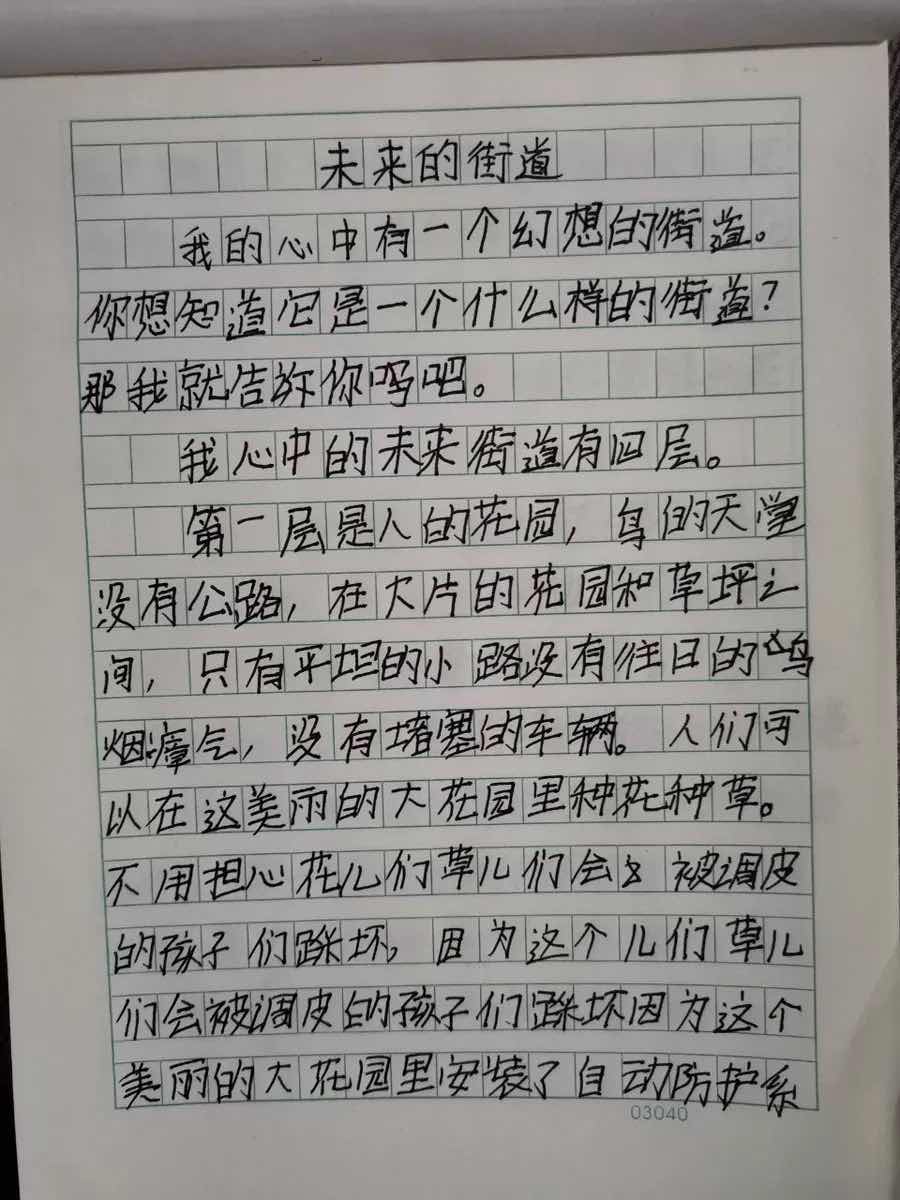 未来的街道
我的心中有一个幻想的街道。
你想知道它是一个什么样的街道?
那我就告诉你吗吧。
我心中的未来街道有四层。
第一层是人的花园,鸟的天堂
没有公路,在大片的花园和草坪之
间,只有平坦的小路没有往日的鸟
烟瘴气,没有堵塞的车辆。人们可
以在这美丽的大花园里种花种草。
不用担心花儿们草儿们会被调皮
的孩子们踩坏,因为这个儿们草儿
们会被调皮的孩子们踩坏因为这个
美丽的大花园里安装了自动防护系
03040